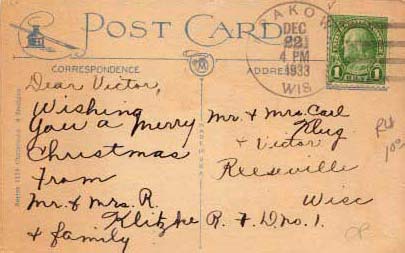 POST CARD
CORRESPONDENCE
ADDRESS
DEC
22
4 PM
1933
WIS
1
1
Dear Victor,
Wishing
you a merry
Christmas
from
Mr. & Mrs. R.
Klitzke
& family
Mr. & Mrs. Carl
Klug
& Victor
Reeseville
Wisc
R. F. D. no. 1.